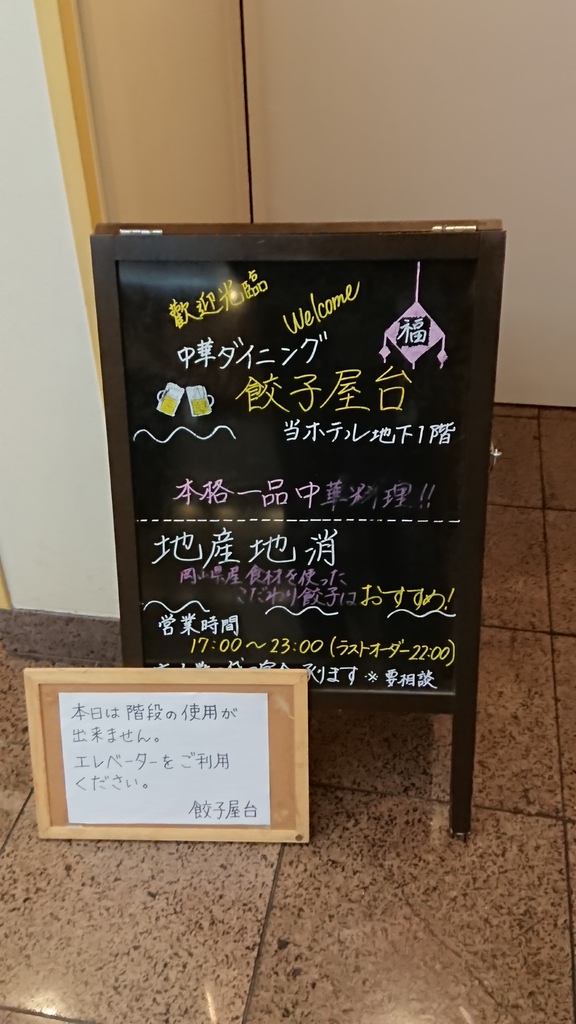 歡迎光臨
Welcome
福
中華ダイニング
餃子屋台
当ホテル地下1階
本格一品中華料理!!
地産地消
岡山県産食材を使った
こだわり餃子はおすすめ!
営業時間
17:00〜23:00(ラストオーダー22:00)
承ります※要相談
本日は階段の使用が
出来ません。
エレベーターをご利用
ください。
餃子屋台